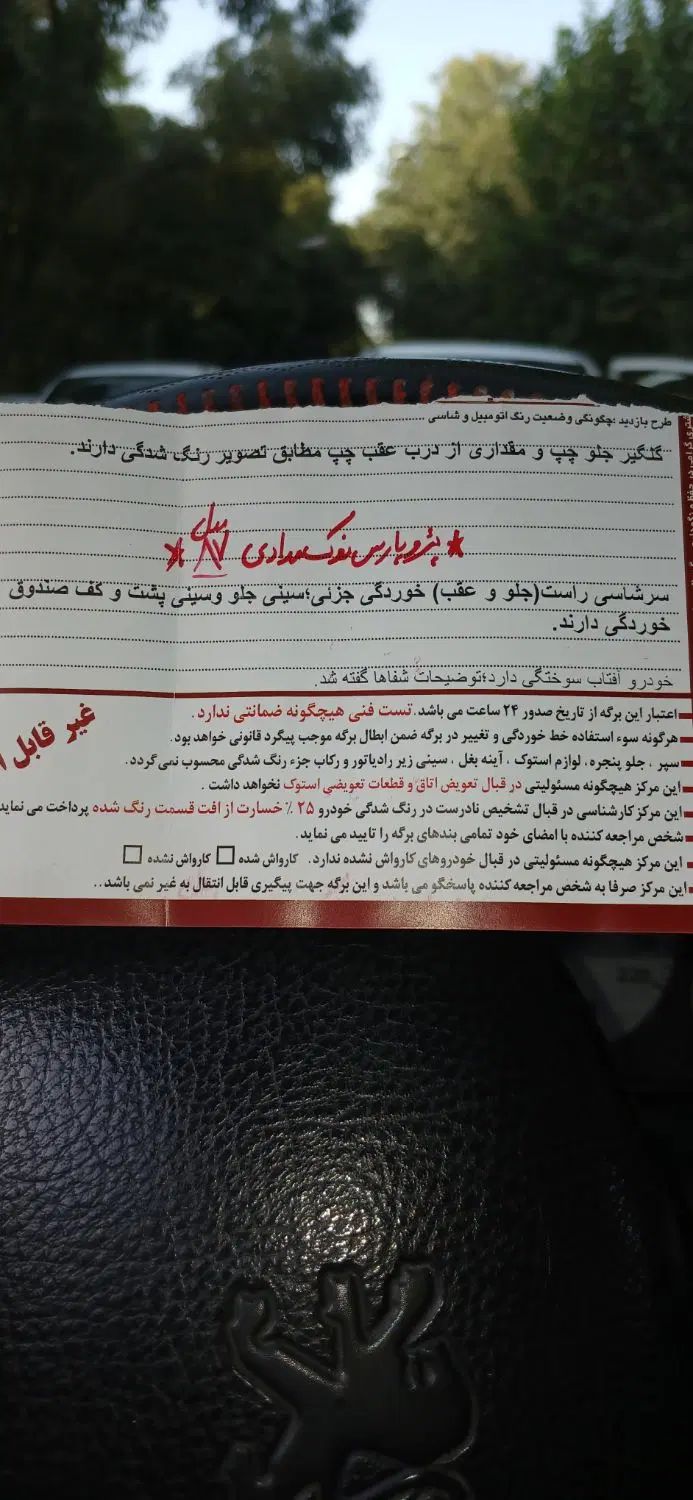 طرح بازدید :چگونگی وضعیت رنگ اتومبیل و شاسی
گلگیر جلو چپ و مقداری از درب عقب چپ مطابق تصویر رنگ شدگی دارند.
* پژو پارس نوک مدادی مدل ۸۷ *
سرشاسی راست(جلو و عقب) خوردگی جزئی؛سینی جلو وسینی پشت و کف صندوق
خوردگی دارند.
خودرو آفتاب سوختگی دارد؛توضیحات شفاها گفته شد.
غیر قابل
اعتبار این برگه از تاریخ صدور ۲۴ ساعت می باشد. تست فنی هیچگونه ضمانتی ندارد .
هرگونه سوء استفاده خط خوردگی و تغییر در برگه ضمن ابطال برگه موجب پیگرد قانونی خواهد بود.
سپر ، جلو پنجره ، لوازم استوک ، آینه بغل ، سینی زیر رادیاتور و رکاب جزء رنگ شدگی محسوب نمی گردد.
این مرکز هیچگونه مسئولیتی در قبال تعویض اتاق و قطعات تعویضی استوک نخواهد داشت .
این مرکز کارشناسی در قبال تشخیص نادرست در رنگ شدگی خودرو ۲۵ ٪ خسارت از افت قسمت رنگ شده پرداخت می نماید
شخص مراجعه کننده با امضای خود تمامی بندهای برگه را تایید می نماید.
این مرکز هیچگونه مسئولیتی در قبال خودروهای کارواش نشده ندارد. کارواش شده کارواش نشده
این مرکز صرفا به شخص مراجعه کننده پاسخگو می باشد و این برگه جهت پیگیری قابل انتقال به غیر نمی باشد..